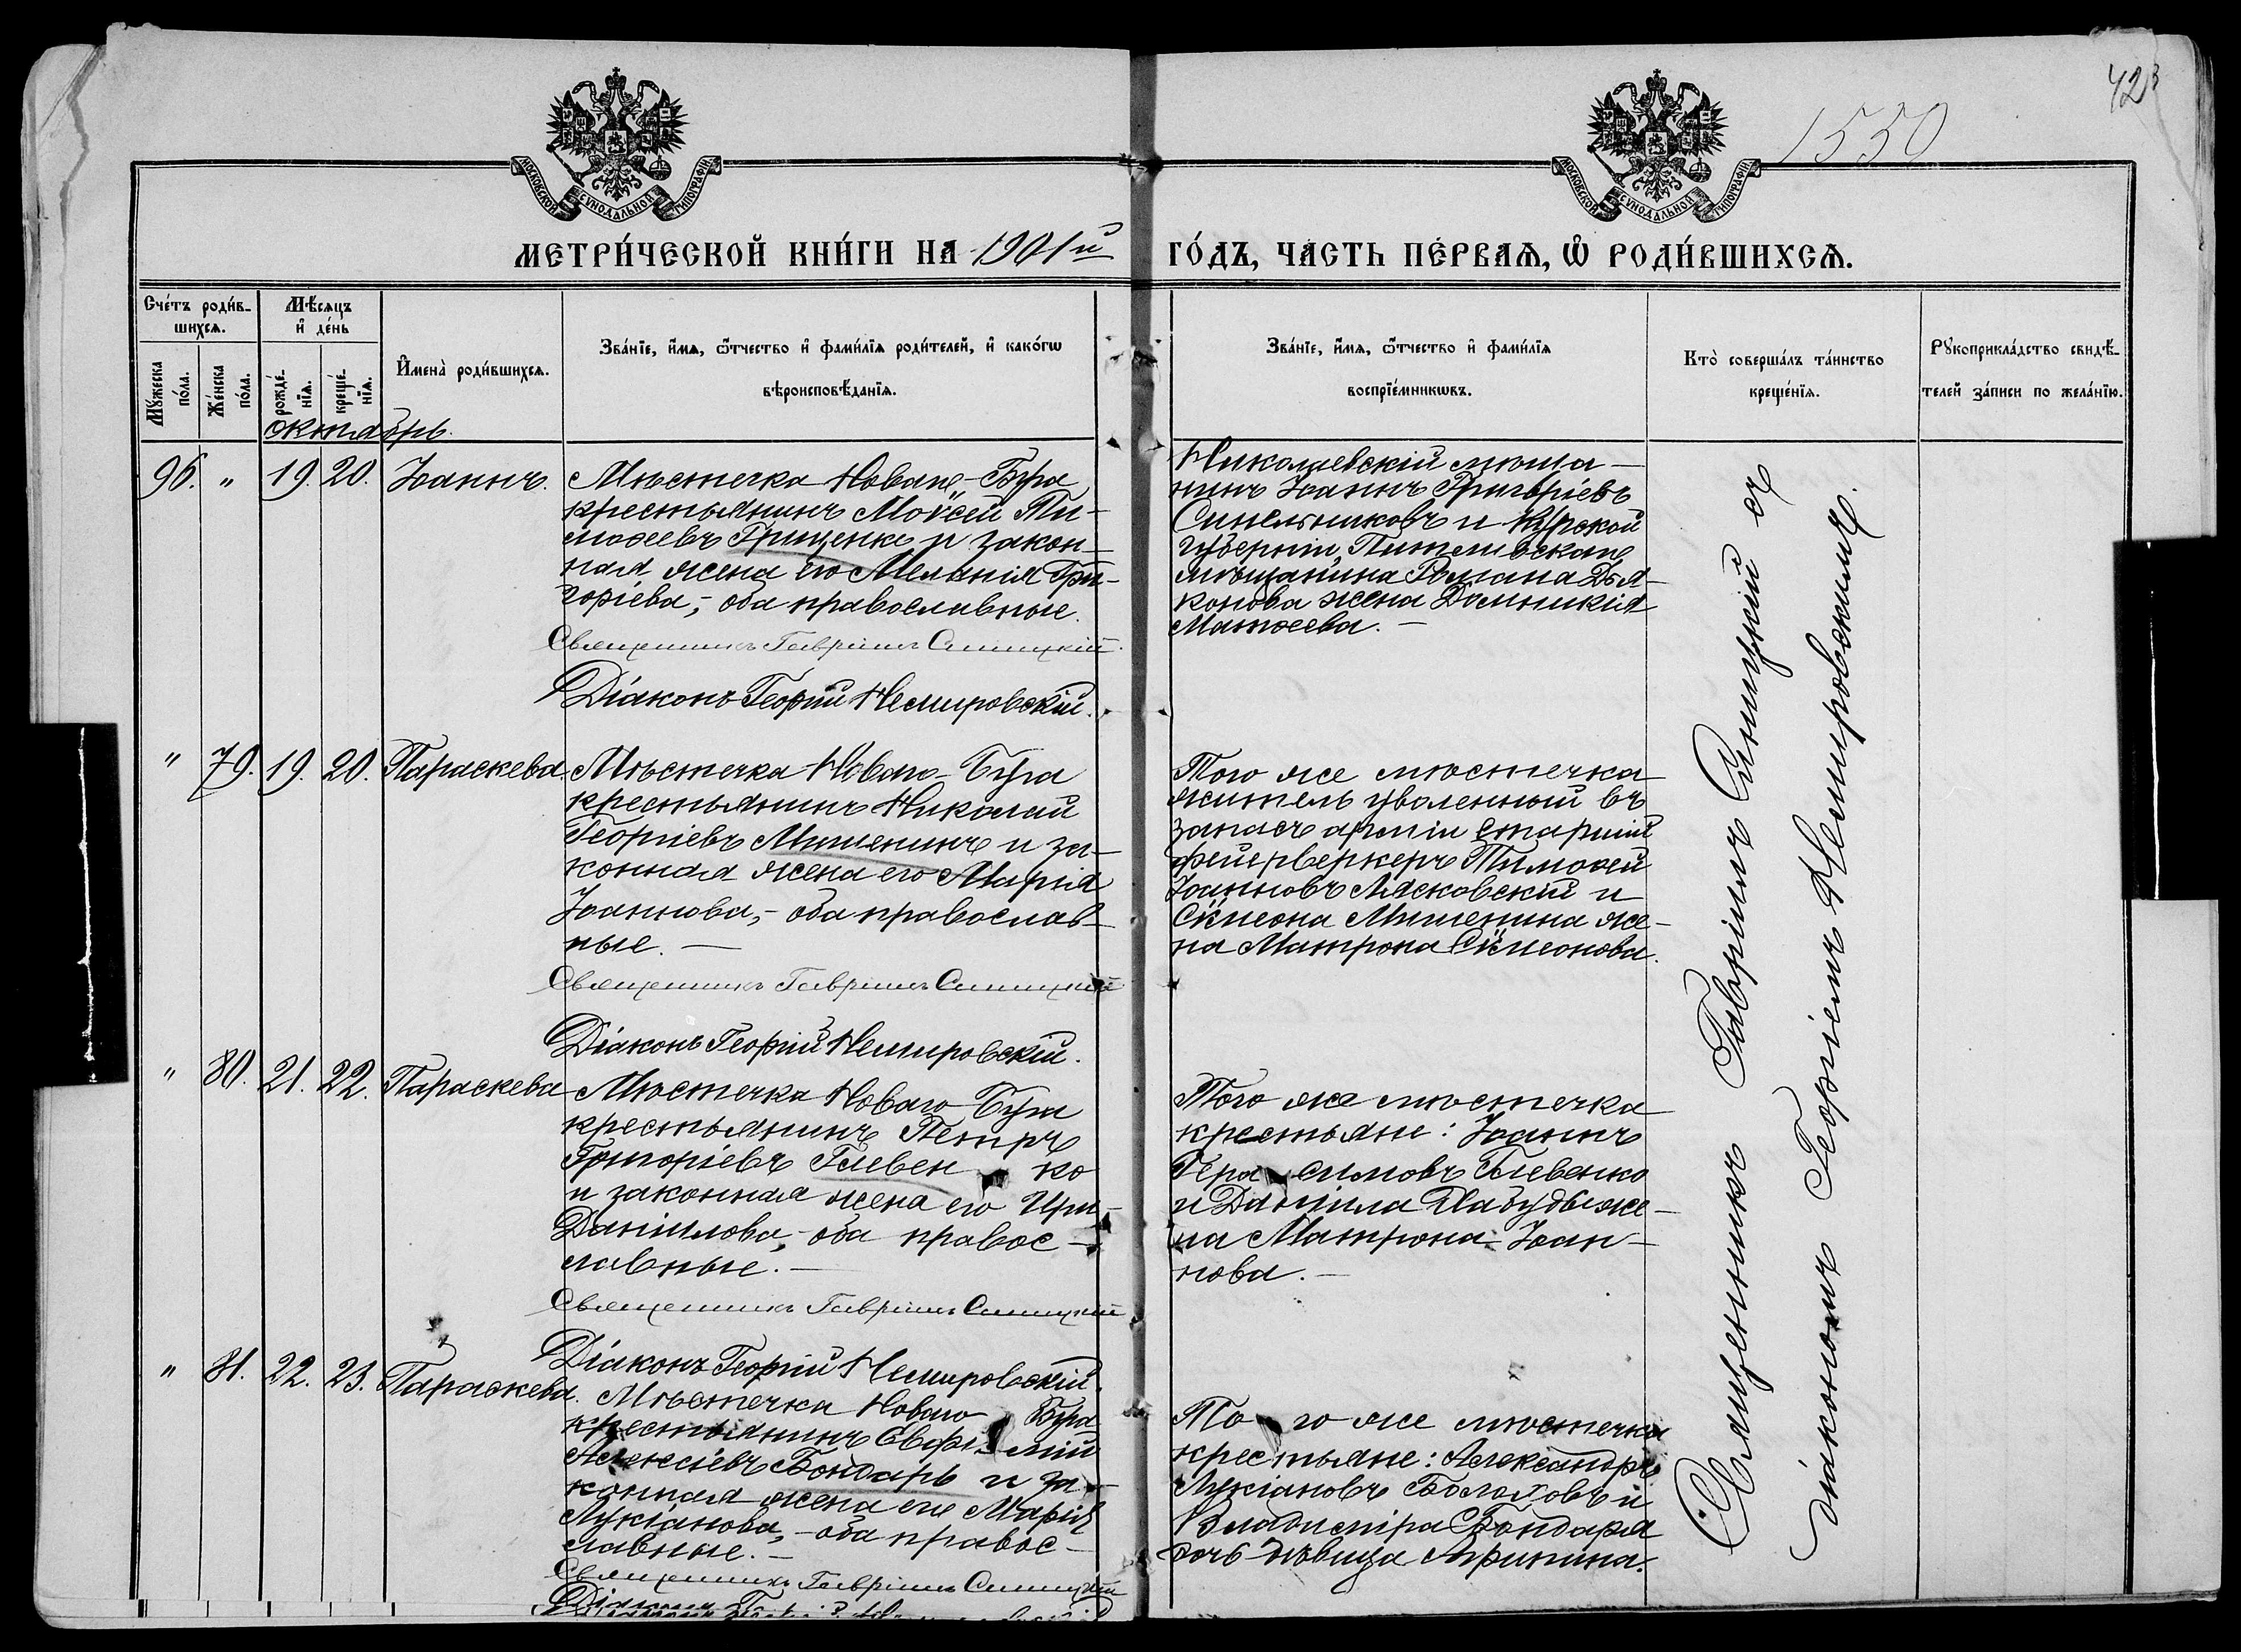 423
1550
МОСКОВСКОЙ СУНОДАЛЬНОЙ ТИПОГРАФІИ
МОСКОВСКОЙ СУНОДАЛЬНОЙ ТИПОГРАФІИ
МЕТРИ́ЧЕСКОЙ КНИ́ГИ НА 1901й ГО́ДЪ, ЧА́СТЬ ПЕ́РВАѦ, Ѡ҆ РОДИ́ВШИХСѦ.
Сче́тъ роди́в-
шихсѧ.
Мꙋ́жеска по́ла.
Же́нска по́ла.
Мѣ́сѧцъ
и҆ де́нь
рожде́-
нїѧ.
креще́-
нїѧ.
И҆мена̀ роди́вшихсѧ.
Зва́нїе, и҆́мѧ, ѻ҆́тчество и҆ фами́лїѧ роди́телей, и҆ како́гѡ
вѣроисповѣ́данїѧ.
Зва́нїе, и҆́мѧ, ѻ҆́тчество и҆ фами́лїѧ
воспрїе́мникѡвъ.
Кто̀ соверша́лъ та́инство
креще́нїѧ.
Рꙋкоприкла́дство свидѣ́-
телей за́писи по жела́нїю.
октябрь.
96. " 19. 20. Іоаннъ.
Мѣстечка Новаго-Буга
крестьянинъ Моѵсей Ти-
моѳеевъ Гриценко и закон-
ная жена его Меланія Гри-
горіева,- оба православные.
Священникъ Гавріилъ Синицкій.
Діаконъ Георгій Немировскій.
Николаевскій мѣща-
нинъ Іоаннъ Григоріевъ
Синельниковъ и Курской
губерніи, Путивльскаго
мѣщанина Романа Дья-
конова жена Домникія
Матѳеева.-
" 79. 19. 20. Параскева.
Мѣстечка Новаго-Буга
крестьянинъ Николай
Георгіевъ Мишенинъ и за-
конная жена его Марія
Іоаннова,- оба православ-
ные.-
Священникъ Гавріилъ Синицкій
Діаконъ Георгій Немировскій.
Того же мѣстечка
житель уволенный въ
запасъ арміи старшій
фейерверкеръ Тимоѳей
Іоанновъ Лясковскій и
Сѵмеона Мишенина же-
на Матрона Сѵмеонова.
" 80. 21. 22. Параскева
Мѣстечка Новаго-Буга
крестьянинъ Петръ
Григоріевъ Глевен ко
и законная жена его Ири-
Даніилова,- оба правос-
лавные.-
Священникъ Гавріилъ Синицкій
Діаконъ Георгій Немировскій.
Того же мѣстечка
крестьяне: Іоаннъ
Гера симовъ Глевенко
и Даніила же-
на Матрона Іоан-
нова.-
" 81. 22. 23. Параскева.
Мѣстечка Новаго Буга
крестьянинъ Евфи мій
Алексіевъ Бондарь и за-
конная жена его Марія
Лукіанова,- оба правос-
лавные.-
Священникъ Гавріилъ Синицкій
Діаконъ
То го же мѣстечка
крестьяне: Александръ
Лукіановъ Болоховъ и
Владиміра Бондаря
дочь дѣвица Агрипина.
Священникъ Гавріилъ Синицкій съ
діакономъ Георгіемъ Немировскимъ.